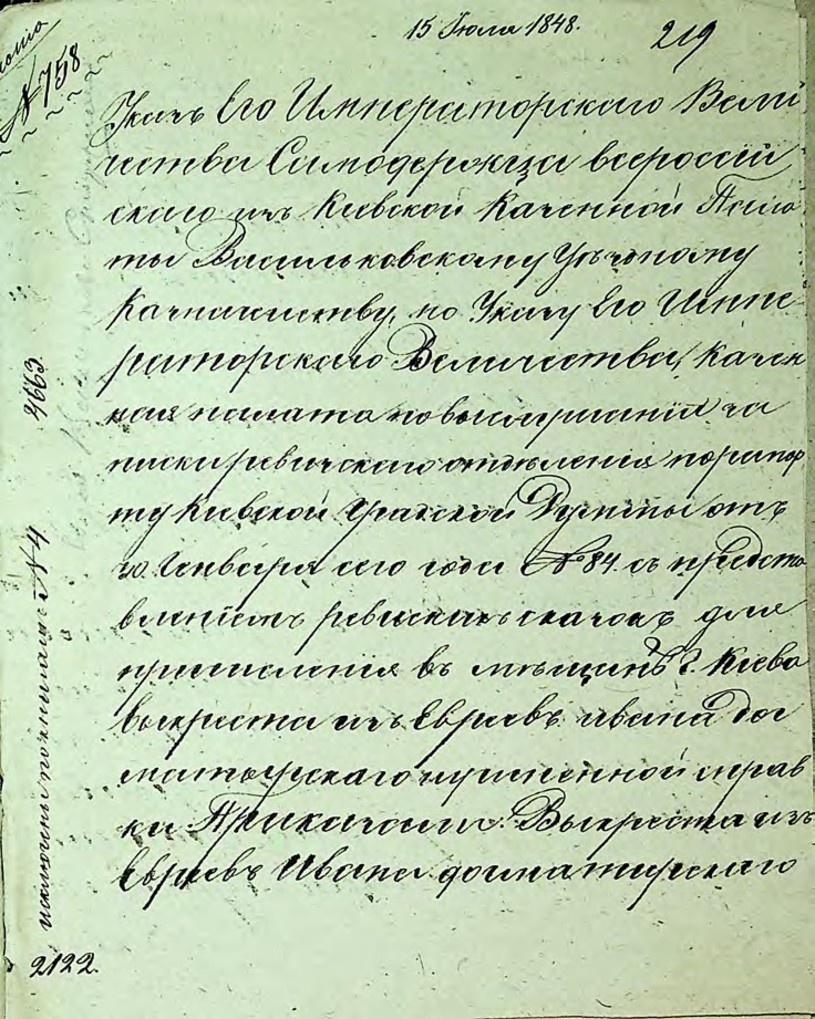 15 Июля 1848.
219
№ 758
Указъ Его Императорскаго Вели
чества Самодержца всероссий
скаго изъ Киевской Казенной Пала
ты Васильковскому Уѣздному
Казначейству, по Указу Его Импе
раторскаго Величества, Казен
ная палата по выслушании за
писки ревизскаго отдѣления по рапор
ту Киевской Градской Думы отъ
20 Генваря сего года № 84. съ предста
влениемъ ревизкихъ сказокъ для
причисления въ мѣщане г. Киева
выкреста изъ Евреевъ Ивана Дог
матырскаго учиненной справ
ки Приказали: Выкреста изъ
Евреевъ Ивана Догматырскаго
4663
№ 4
2122.